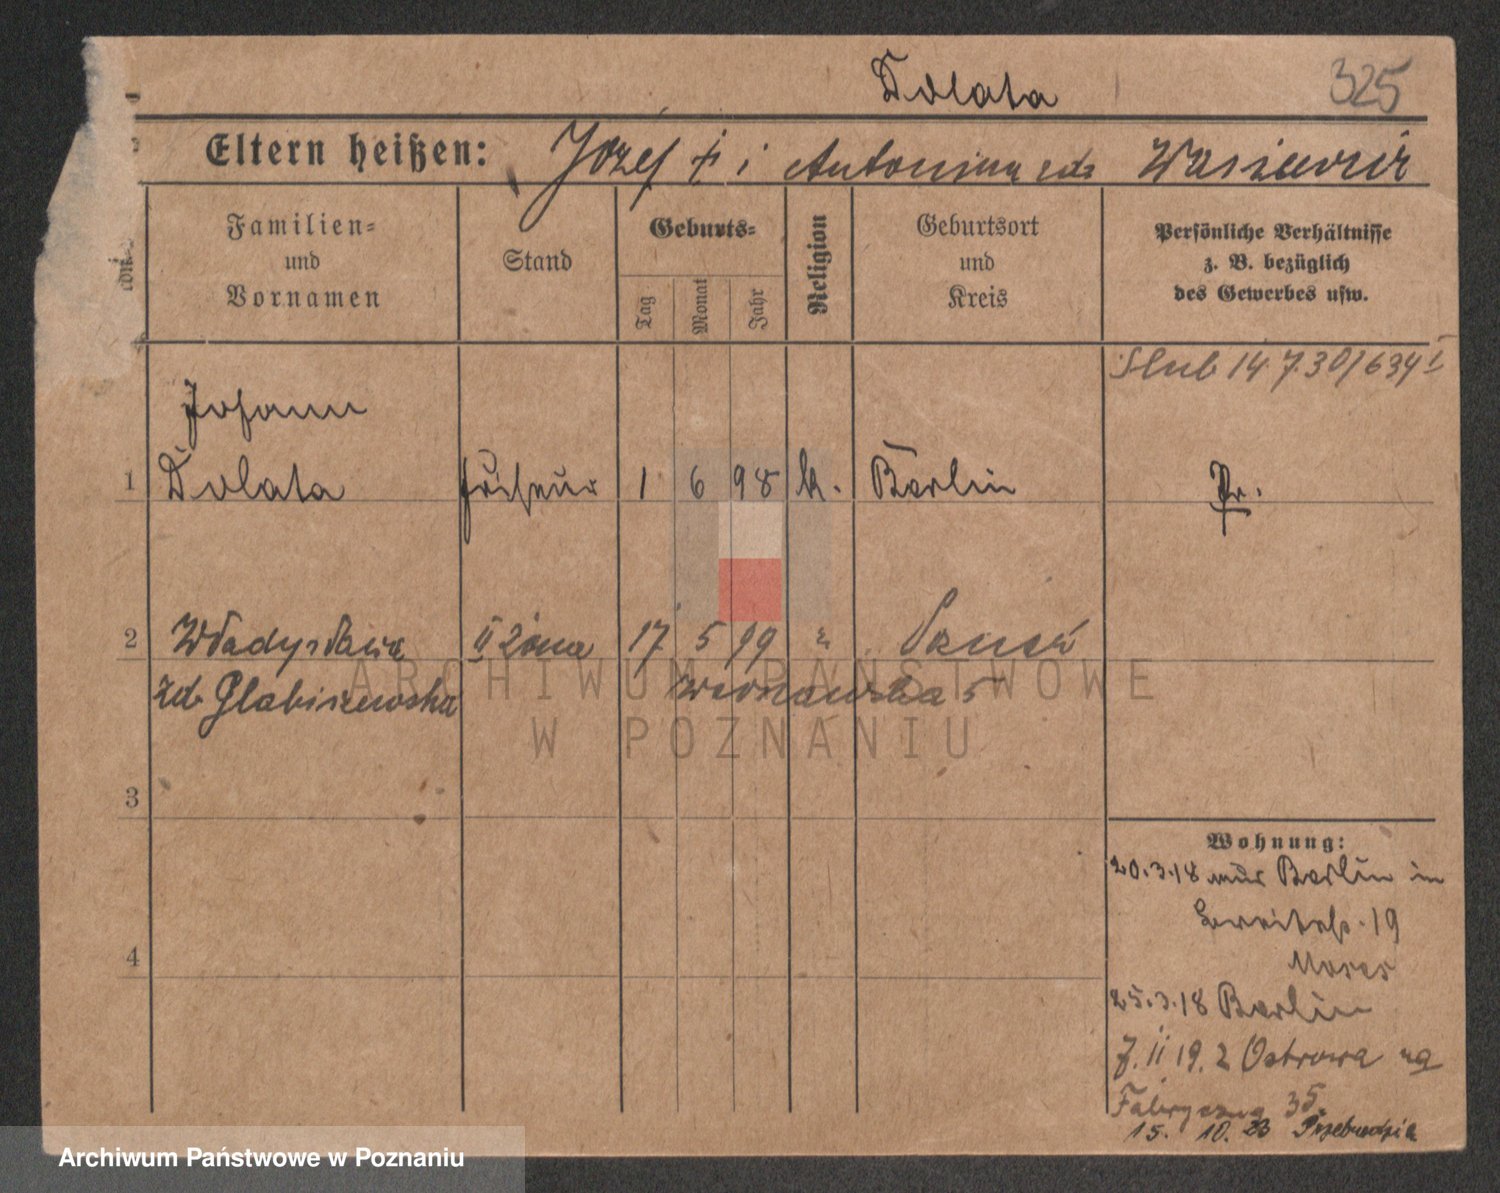 Dolata
325
Eltern heißen: Józef † i Antonina zd.
Familien- und Vornamen
Stand
Geburts-
Tag
Monat
Jahr
Religion
Geburtsort und Kreis
Persönliche Verhältnisse
z. B. bezüglich
des Gewerbes usw.
Slub 14 7.30/634 I
Johann
1 Dolata Friseur 1 6 98 k. Berlin Pr.
2 Władysława II żona 17 5 99 Poznań
zd. Glabiszewska 5
ARCHIWUM PAŃSTWOWE
W POZNANIU
3
4
Wohnung:
20.3.18 aus Berlin in
Breitestr. 19
Moses
25.3.18 Berlin
7. II 19. z Ostrowa na
Fabryczną 35
15. 10. 23
Archiwum Państwowe w Poznaniu